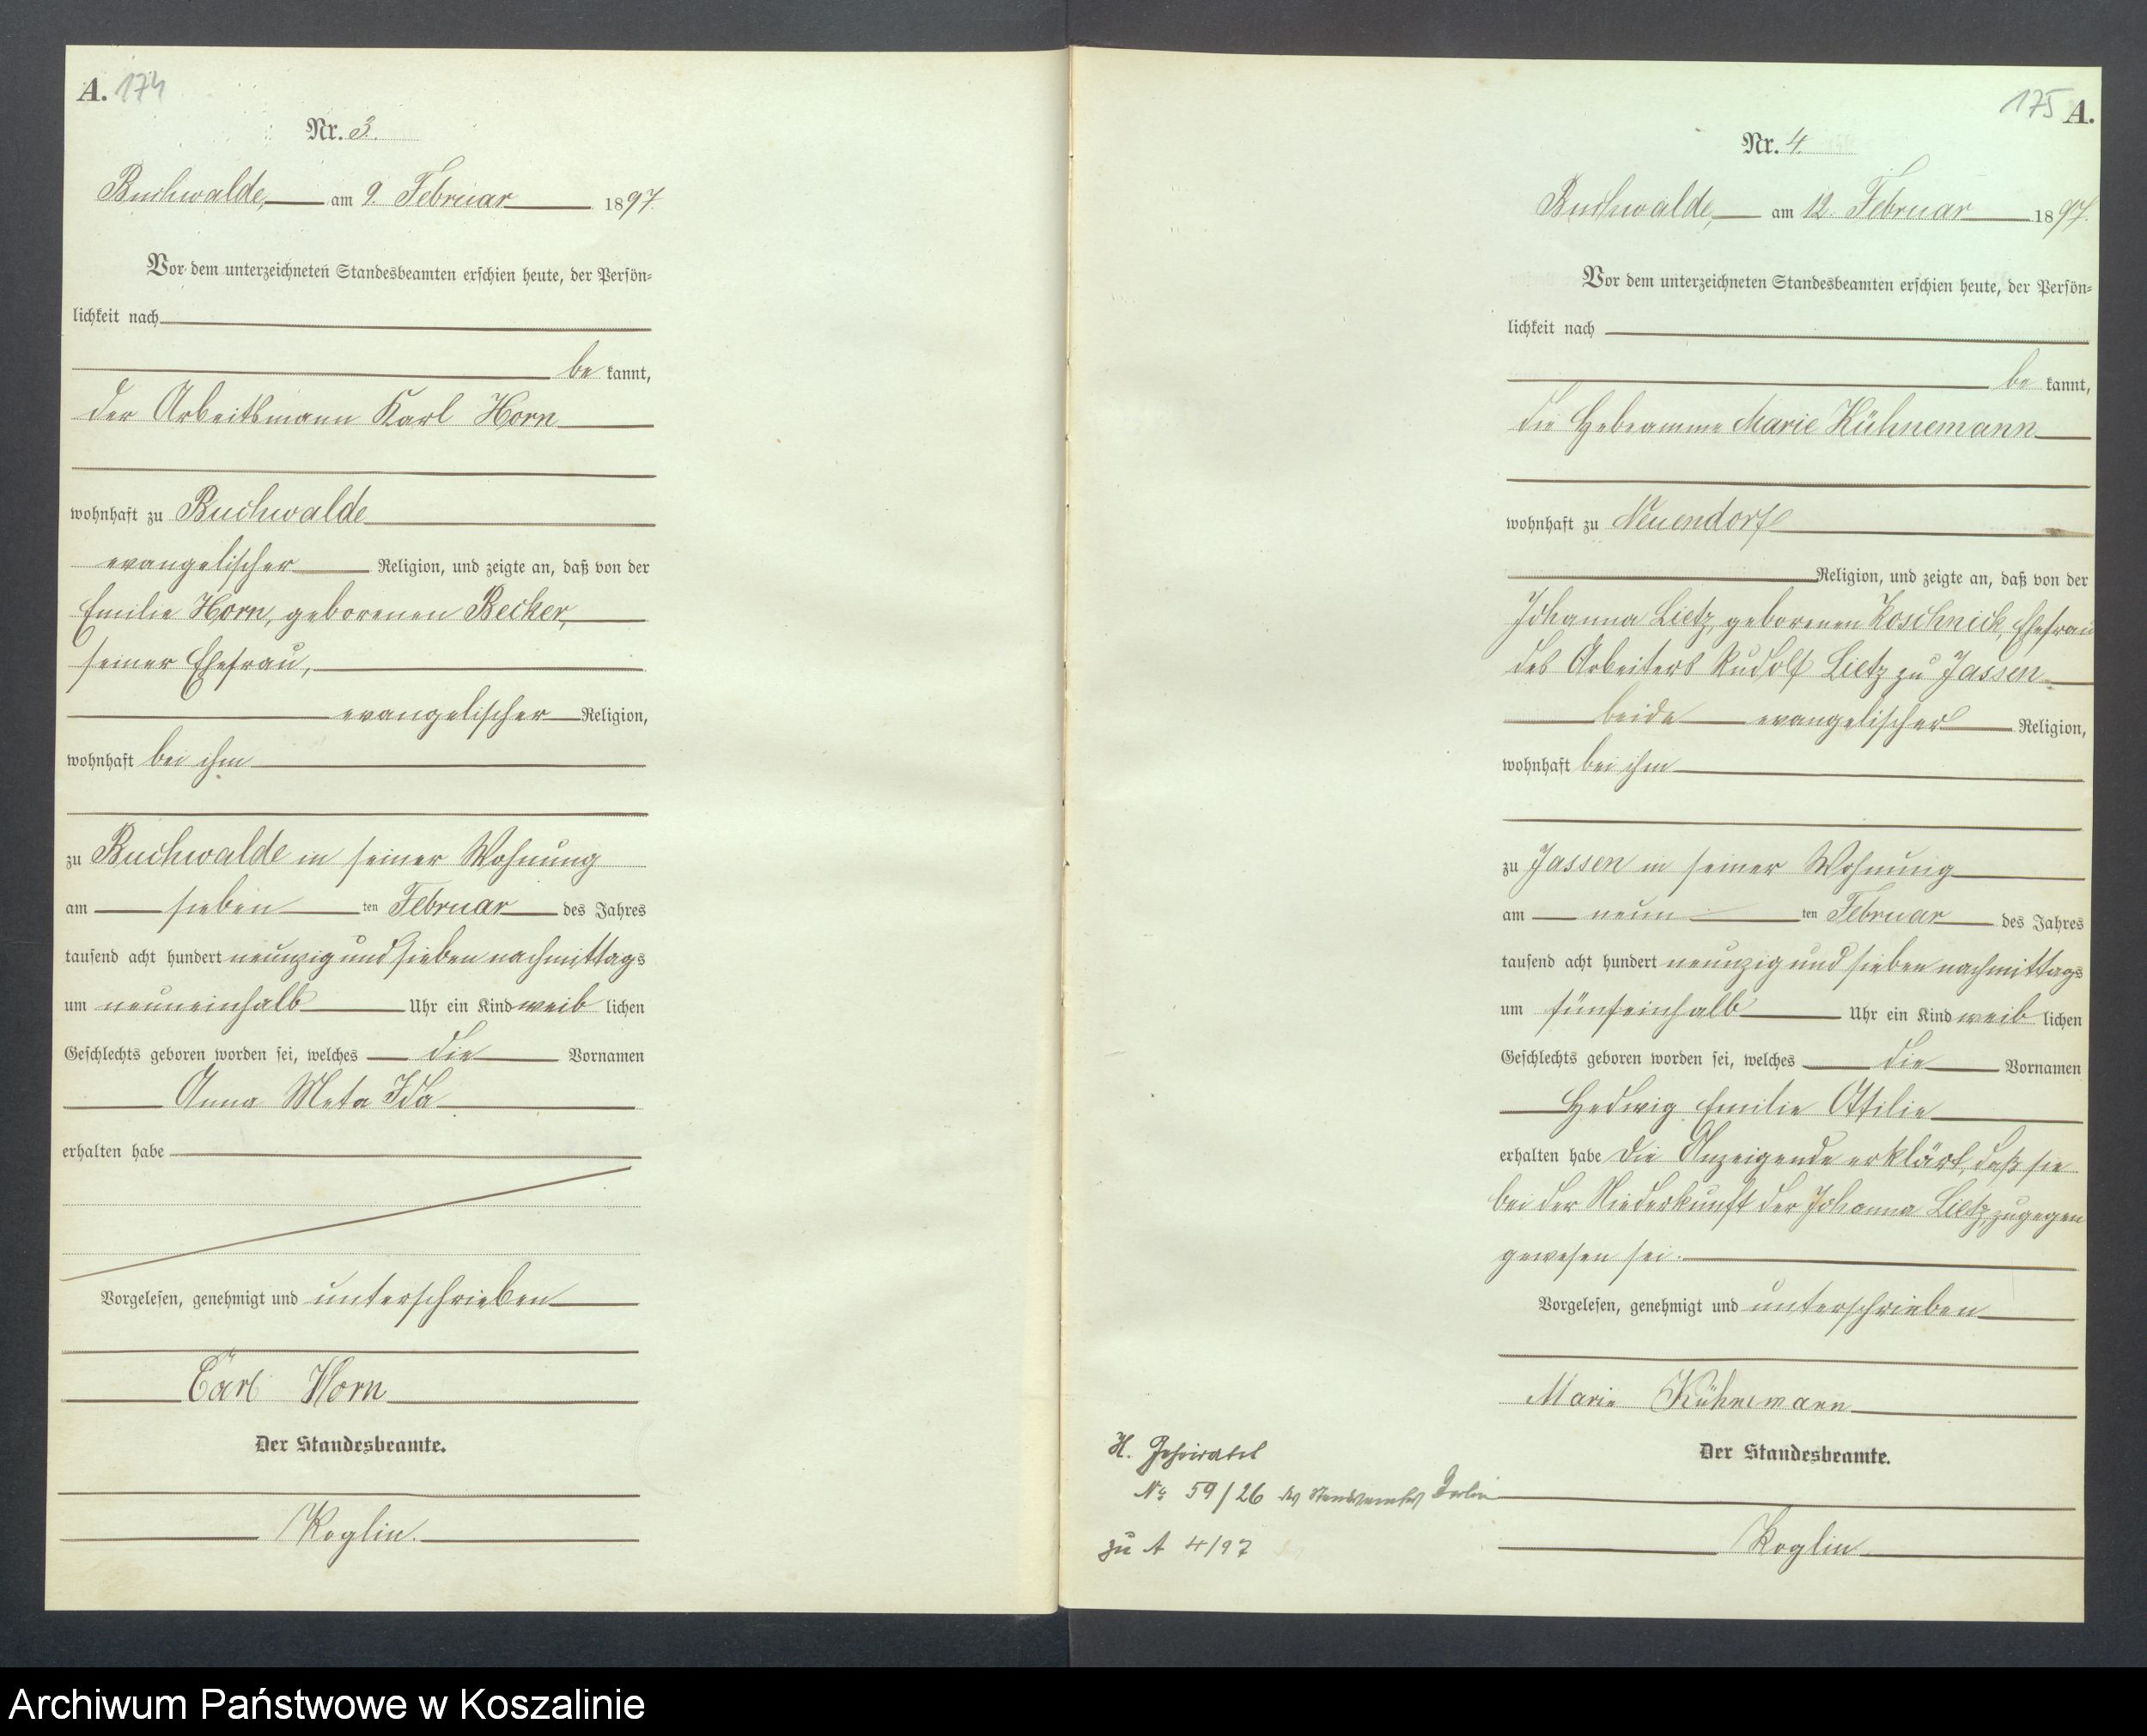 A. 174
Nr. 3.
Buchwalde, am 9. Februar 1897.
Vor dem unterzeichneten Standesbeamten erschien heute, der Persön-
lichkeit nach
be kannt,
der Arbeitsmann Karl Horn
wohnhaft zu Buchwalde
evangelischer Religion, und zeigte an, daß von der
Emilie Horn, geborenen Becker,
seiner Ehefrau,
evangelischer Religion,
wohnhaft bei ihm
zu Buchwalde in seiner Wohnung
am sieben ten Februar des Jahres
tausend acht hundert neunzig und sieben nachmittags
um neuneinhalb Uhr ein Kind weib lichen
Geschlechts geboren worden sei, welches die Vornamen
Anna Meta Ida
erhalten habe
Vorgelesen, genehmigt und unterschrieben
Carl Horn
Der Standesbeamte.
Koglin.
175 A.
Nr. 4.
Buchwalde, am 12. Februar 1897.
Vor dem unterzeichneten Standesbeamten erschien heute, der Persön-
lichkeit nach
be kannt,
die Hebeamme Marie Kühnemann
wohnhaft zu Neuendorf
Religion, und zeigte an, daß von der
Johanna Lietz, geborenen Koschnick, Ehefrau
des Arbeiters Rudolf Lietz zu Jassen
beide evangelischer Religion,
wohnhaft bei ihm
zu Jassen in seiner Wohnung
am neun ten Februar des Jahres
tausend acht hundert neunzig und sieben nachmittags
um fünfeinhalb Uhr ein Kind weib lichen
Geschlechts geboren worden sei, welches die Vornamen
Hedwig Emilie Ottilie
erhalten habe Die Anzeigende erklärt, daß sie
bei der Niederkunft der Johanna Lietz, zugegen
gewesen sei.
Vorgelesen, genehmigt und unterschrieben
Marie Kühnemann
Der Standesbeamte.
Koglin
H.
No 59/26 des Standesamtes Berlin
zu A 4/97
Archiwum Państwowe w Koszalinie